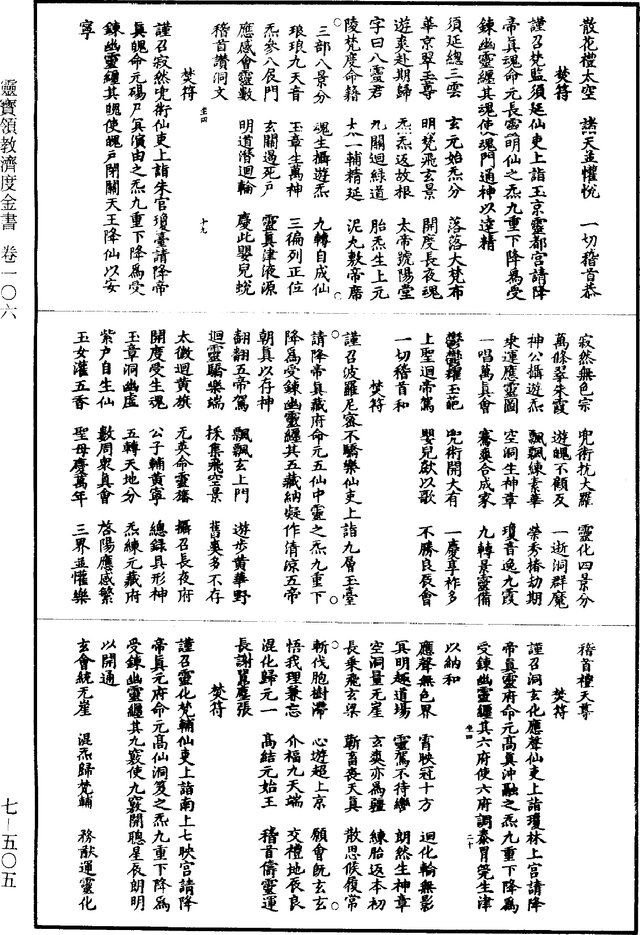 散花禮太空 諸天並懽悅 一切稽首恭
焚符
謹召梵監須延仙吏上詣玉京靈都宮請降
帝真魂命元長靈明仙之炁九重下降爲受
鍊幽靈纒其魂使魂門通神以達精
須延總三雲 玄元始炁分 落落大梵布
華京翠玉尊 明梵飛玄景 開度長夜魂
遊爽赴期歸 炁炁返故根 太帝號陽堂
字曰八靈君 九關迴綠道 胎炁生上元
陵梵度命籍 太一輔精延 泥丸敷帝席
三部八景分 魂生攝遊炁 九轉自成仙
琅琅九天音 玉章生萬神 三徧列正位
炁參八辰門 玄關遏死戶 靈真津液源
應感會靈數 明道潛迴輪 慶此嬰兒蛻
稽首讚洞文
坐四 十九
焚符
謹召寂然兜術仙吏上詣朱宮瓊臺請降帝
真魄命元碭尸冥演由之炁九重下降爲受
鍊幽靈纒其魄使魄戶閉關天王降仙以安
寧
寂然無色宗 兜術抗大羅 靈化四景分
萬條翠朱霞 遊魄不顧反 一逝洞群魔
神公攝遊炁 飄飄練素華 榮秀椿劫期
乘運應靈圖 空洞生神章 瓊音逸九霞
一唱萬真會 騫爽合成家 九轉景靈備
鬱鬱耀玉葩 兜術開大有 一慶享祚多
上聖迴帝駕 嬰兒歔以歌 不勝良辰會
一切稽首和
焚符
謹召波羅尼密不驕樂仙吏上詣九層玉臺
請降帝真藏府命元五仙中靈之炁九重下
降爲受鍊幽靈纒其五藏納凝作清涼五帝
朝真以存神
翩翩五帝駕 飄飄玄上門 遊步黃華野
迴靈驕樂端 採集飛空景 舊爽多不存
太微迴黃旗 无英命靈旛 攝召長夜府
開度受生魂 公子輔黃寧 總錄具形神
玉章洞幽虛 五轉天地分 炁練元藏府
紫戶自生仙 數周衆真會 啓陽應感繁
玉女灌五香 聖母慶萬年 三界並懽樂
稽首禮天尊
焚符
謹召洞玄化應聲仙吏上詣瓊林上宮請降
帝真靈府命元高真沖融之炁九重下降爲
受鍊幽靈纒其六府使六府調泰胃管生津
坐四 二十
以納和
應聲無色界 霄映冠十方 迴化輪無影
冥明趣道場 靈駕不待轡 朗然生神章
空洞量无崖 玄爽亦爲疆 練胎返本初
長乘飛玄梁 蘄畜喪天真 散思候履常
斬伐胞樹滯 心遊超上京 願會既玄玄
悟我理兼忘 介福九天端 交禮地辰良
混化歸元一 高結元始王 稽首儔靈運
長謝囂塵張
焚符
謹召靈化梵輔仙吏上詣南上七映宮請降
帝真元府命元高仙洞笈之炁九重下降爲
受鍊幽靈纒其九竅使九竅開聰星辰朗明
以開通
玄會統无崖 混炁歸梵輔 務猷運靈化
靈寶領教濟度金書 卷一〇六
七—五〇五